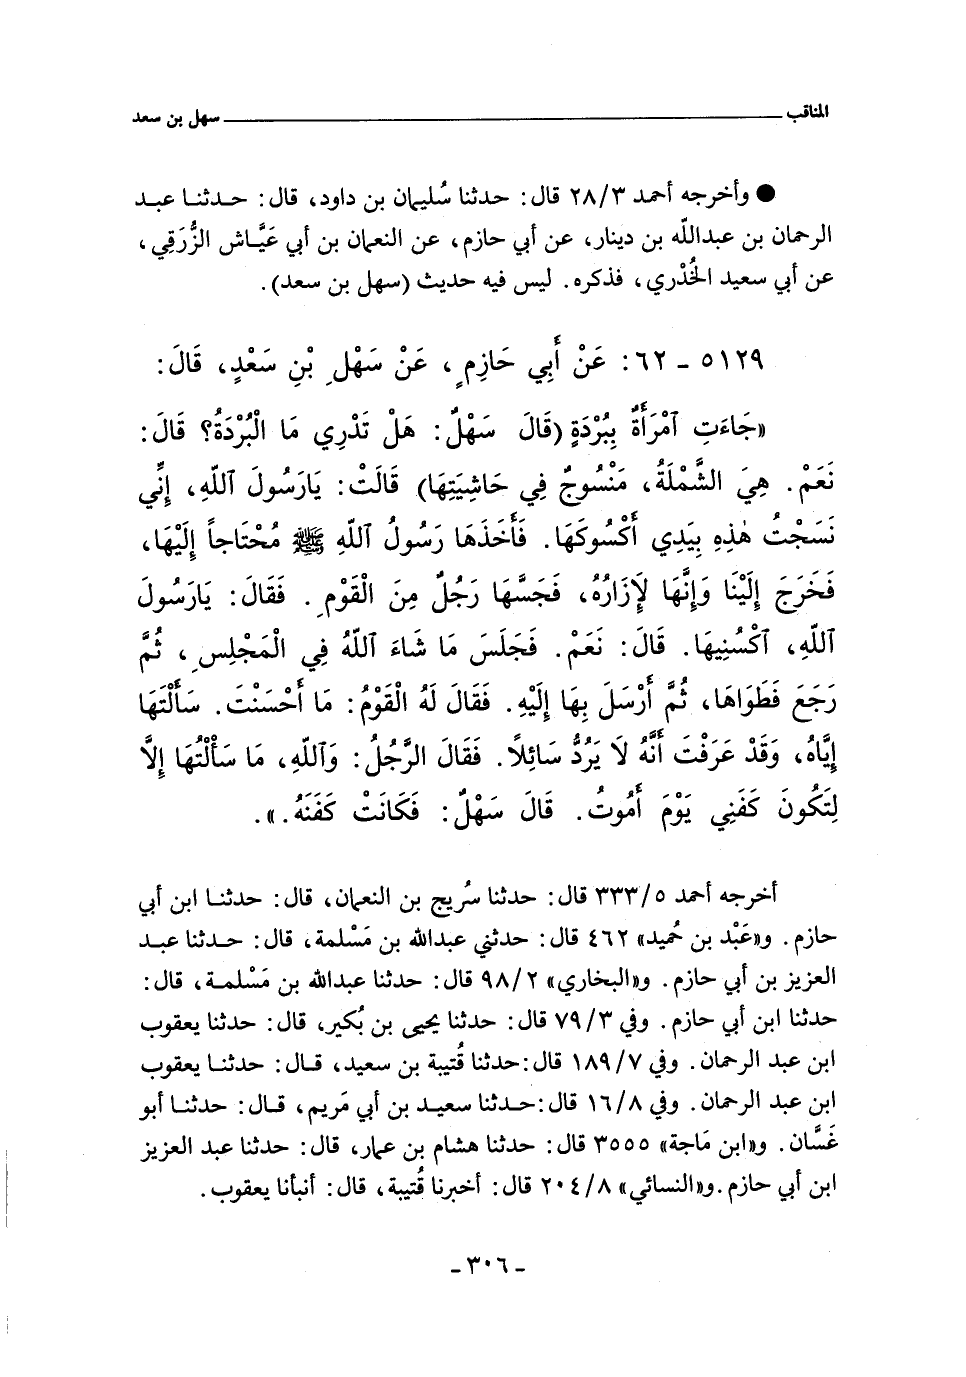 المناقب ــــــــــــــــــــ سهل بن سعد
● وأخرجه أحمد ٢٨/٣ قال: حدثنا سُليمان بن داود، قال: حدثنا عبد
الرحمان بن عبدالله بن دينار، عن أبي حازم، عن النعمان بن أبي عَيَّاش الزُّرَقِي،
عن أبي سعيد الخُدْري، فذكره. ليس فيه حديث (سهل بن سعد).
٥١٢٩ - ٦٢: عَنْ أَبِي حَازِمٍ، عَنْ سَهْلِ بْنِ سَعْدٍ، قَالَ:
«جَاءَتِ ٱمْرَأَةٌ بِبُرْدَةٍ (قَالَ سَهْلٌ: هَلْ تَدْرِي مَا الْبُرْدَةُ؟ قَالَ:
نَعَمْ. هِيَ الشَّمْلَةُ، مَنْسُوجٌ فِي حَاشِيَتِهَا) قَالَتْ: يَارَسُولَ ٱللّهِ، إِنِّي
نَسَجْتُ هٰذِهِ بِيَدِي أَكْسُوكَهَا. فَأَخَذَهَا رَسُولُ ٱللّهِ ﷺ مُحْتَاجاً إِلَيْهَا،
فَخَرَجَ إِلَيْنَا وَإِنَّهَا لإِزَارُهُ، فَجَسَّهَا رَجُلٌ مِنَ الْقَوْمِ. فَقَالَ: يَارَسُولَ
ٱللّهِ، ٱكْسُنِيهَا. قَالَ: نَعَمْ. فَجَلَسَ مَا شَاءَ ٱللّهُ فِي الْمَجْلِسِ، ثُمَّ
رَجَعَ فَطَوَاهَا، ثُمَّ أَرْسَلَ بِهَا إِلَيْهِ. فَقَالَ لَهُ الْقَوْمُ: مَا أَحْسَنْتَ. سَأَلْتَهَا
إِيَّاهُ، وَقَدْ عَرَفْتَ أَنَّهُ لَا يَرُدُّ سَائِلًا. فَقَالَ الرَّجُلُ: وَٱللّهِ، مَا سَأَلْتُهَا إِلَّا
لِتَكُونَ كَفَنِي يَوْمَ أَمُوتُ. قَالَ سَهْلٌ: فَكَانَتْ كَفَنَهُ.».
أخرجه أحمد ٣٣٣/٥ قال: حدثنا سُريج بن النعمان، قال: حدثنا ابن أبي
حازم. و«عَبْد بن حُميد» ٤٦٢ قال: حدثني عبدالله بن مَسْلمة، قال: حدثنا عبد
العزيز بن أبي حازم. و«البخاري» ٩٨/٢ قال: حدثنا عبدالله بن مَسْلمة، قال:
حدثنا ابن أبي حازم. وفي ٧٩/٣ قال: حدثنا يحيى بن بُكير، قال: حدثنا يعقوب
ابن عبد الرحمان. وفي ١٨٩/٧ قال:حدثنا قُتيبة بن سعيد، قال: حدثنا يعقوب
ابن عبد الرحمان. وفي ١٦/٨ قال:حدثنا سعيد بن أبي مَريم، قال: حدثنا أبو
غَسَّان. و«ابن مَاجة» ٣٥٥٥ قال: حدثنا هشام بن عمار، قال: حدثنا عبد العزيز
ابن أبي حازم.و«النسائي» ٢٠٤/٨ قال: أخبرنا قُتيبة، قال: أنبأنا يعقوب.
- ٣٠٦ -